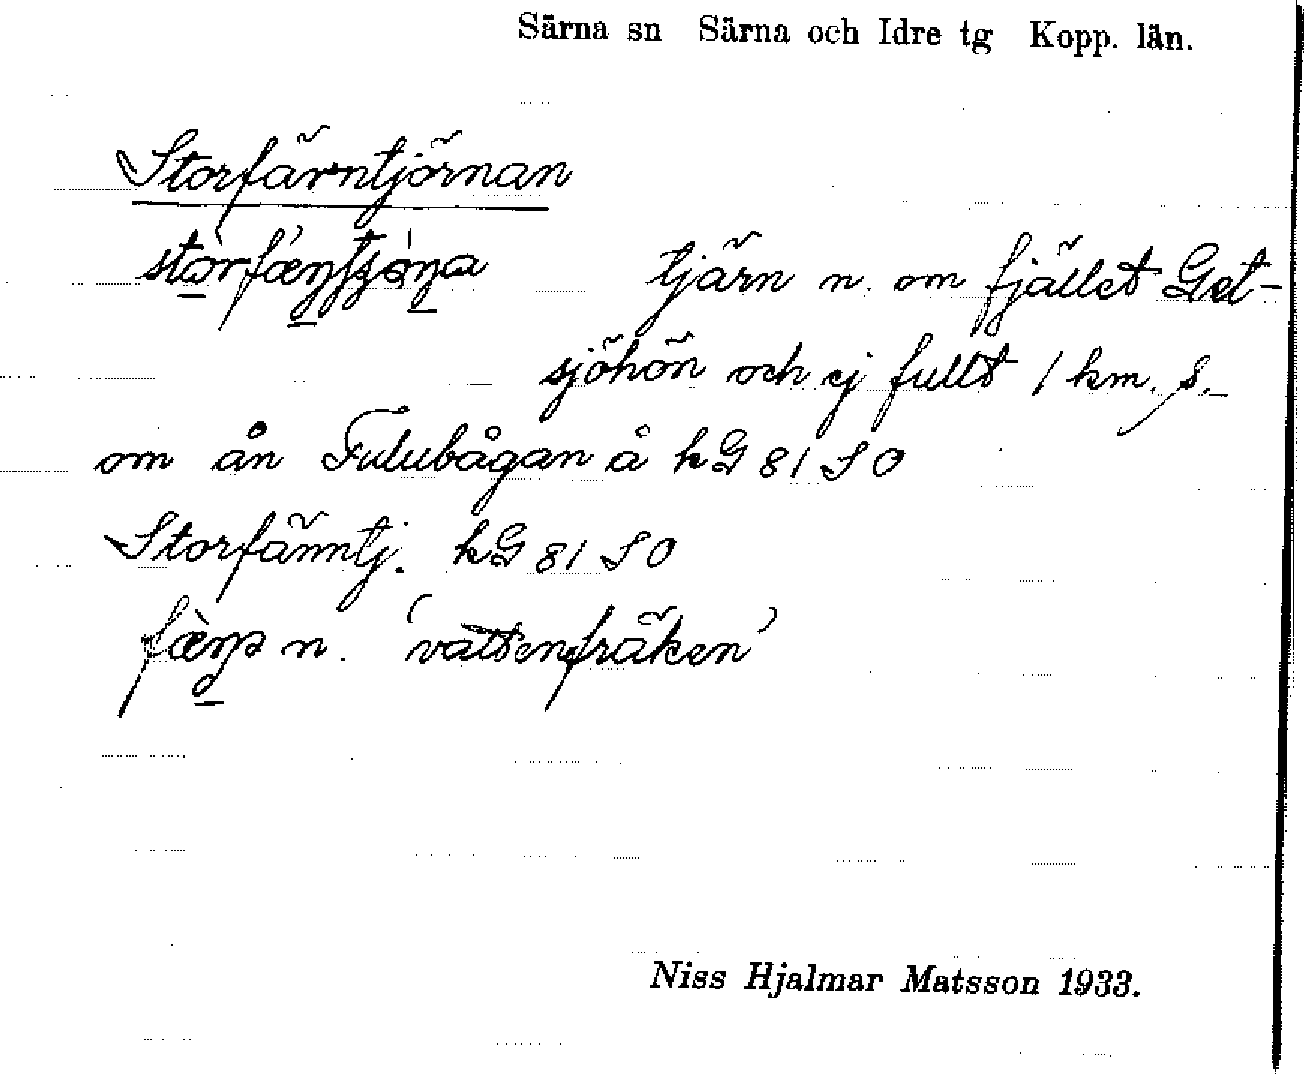 Särna sn Särna och Idre tg Kopp. län.
Storfärntjörnan
tjärn n. om fjället Get-
sjöhön och ej fullt 1 km. s.
om ån Fulubågan å kG 81 SO
Storfänntj. kG 81 SO
n. 'vattenfräken'
Niss Hjalmar Matsson 1933.